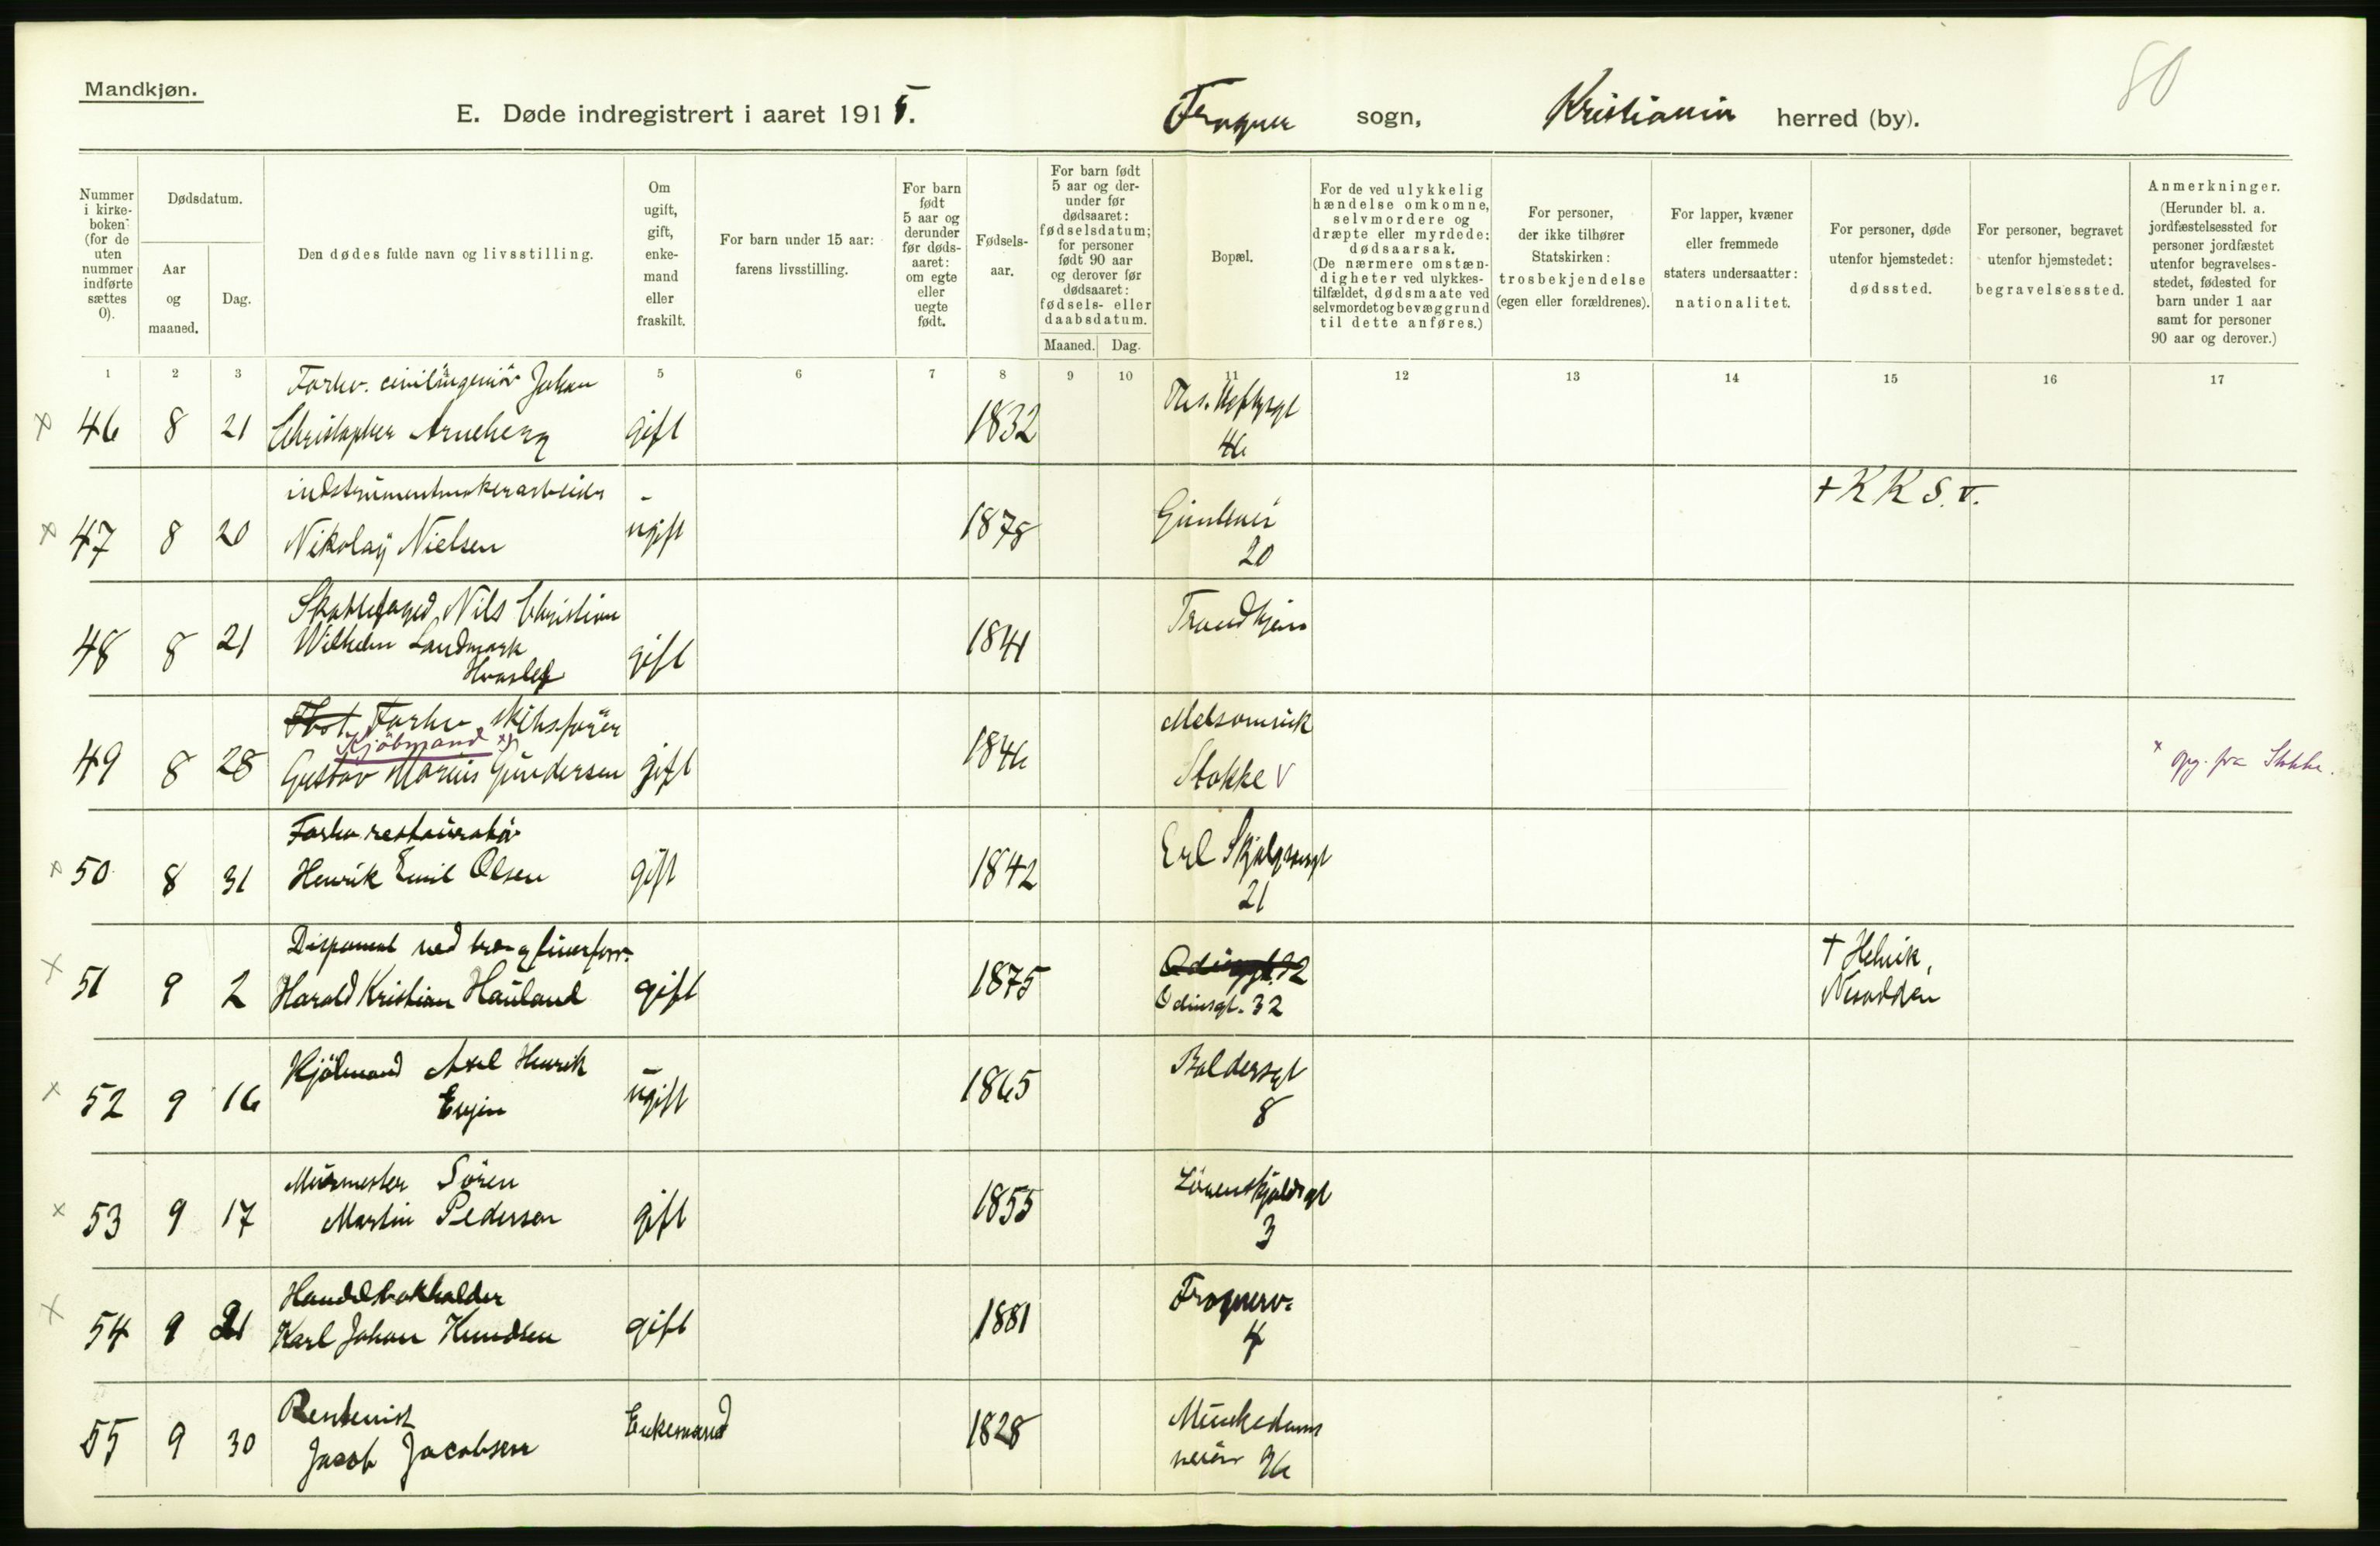 80
Mandkjøn.
E. Døde indregistrert i aaret 1915.
Frogner sogn, Kristiania herred (by).
Nummer i kirke- boken (for de uten nummer indførte sættes 0).
Dødsdatum.
Aar og maaned.
Dag.
Den dødes fulde navn og livsstilling.
Om ugift, gift, enke- mand eller fraskilt.
For barn under 15 aar: farens livsstilling.
For barn født 5 aar og derunder før døds- aaret: om egte eller uegte født.
Fødsels- aar.
For barn født 5 aar og der- under før dødsaaret: fødselsdatum; for personer født 90 aar og derover før dødsaaret: fødsels- eller daabsdatum.
Maaned. Dag.
Bopæl.
For de ved ulykkelig hændelse omkomne, selvmordere og dræpte eller myrdede: dødsaarsak. (De nærmere omstæn- digheter ved ulykkes- tilfældet, dødsmaate ved selvmordet og bevæggrund til dette anføres.)
For personer, der ikke tilhører Statskirken: trosbekjendelse (egen eller forældrenes).
For lapper, kvæner eller fremmede staters undersaatter: nationalitet.
For personer, døde utenfor hjemstedet: dødssted.
For personer, begravet utenfor hjemstedet: begravelsessted.
Anmerkninger. (Herunder bl. a. jordfæstelsessted for personer jordfæstet utenfor begravelses- stedet, fødested for barn under 1 aar samt for personer 90 aar og derover.)
1 2 3 5 6 7 8 9 10 11 12 13 14 15 16 17
Forhv. civilingeniör Johan Ths. Heftysgt
x 46 8 21 Christopher Arneberg gift 1832 46
instrumentmakerarbeider + K K S. v.
x 47 8 20 Nikolaÿ Nielsen ugift 1878 Gimlevei
20
Skattefoged Nils Christian Trondhjem
48 8 21 Wilhelm Landmark gift 1841
Hvoslef
Forhv skibsförer Melsomvik
Kjöbmand x)
49 8 28 Gustav Marius Gundersen gift 1846 Stokke v x opg. fra Stokke.
Forhv. restauratör Erl Skjalgsøngt
x 50 8 31 Henrik Emil Olsen gift 1842 21
Disponent ved Odinsgt. 32 † Helvik,
x 51 9 2 Harald Kristian Hauland gift 1875 Odinsgt. 32 Nesodden
Kjöbmand Axel Henrik Baldersgt
x 52 9 16 ugift 1865 8
Murmester Sören Lövenskjoldsgt
x 53 9 17 Martin Pedersen gift 1855 3
Handelsbokholder Frognerv.
x 54 9 21 Karl Johan Knudsen gift 1881 4
Rentenist Enkemand Munkedams
55 9 30 Jacob Jacobsen 1828 veien 96